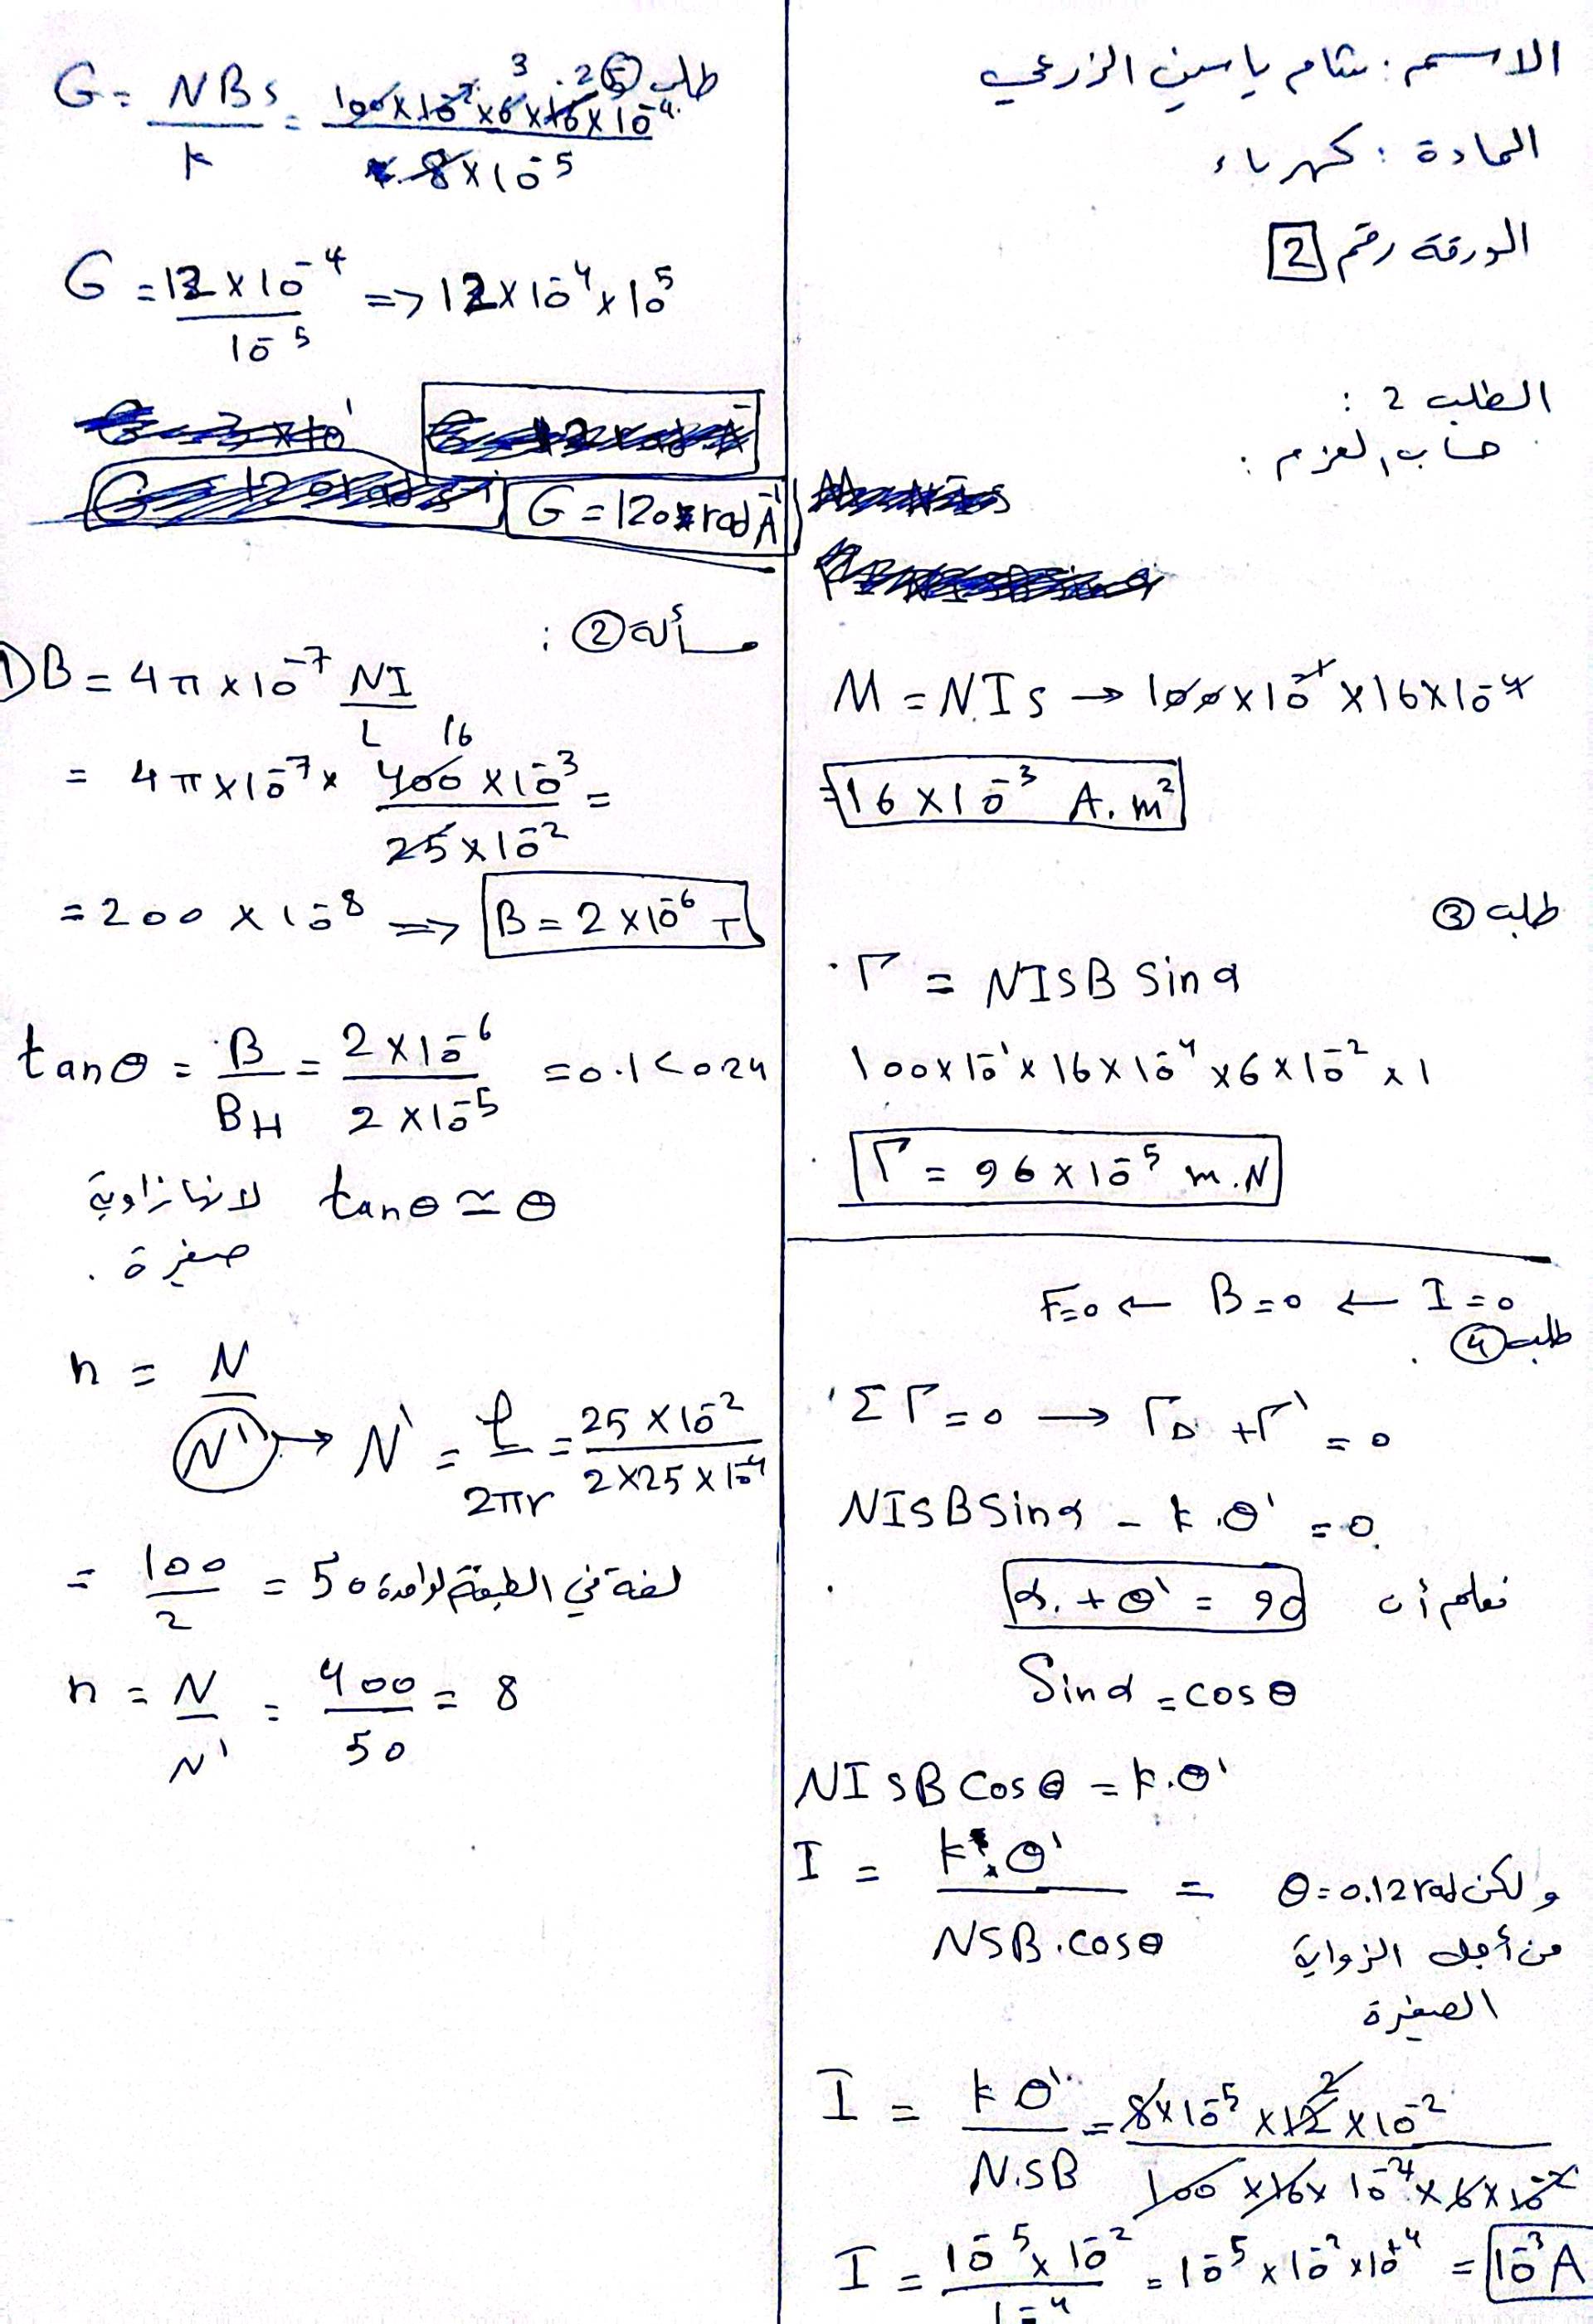 الاسم: شام ياسين الزرعي
المادة: كهرباء
الورقة رقم 2
الطلب 2 :
حساب العزم :
M = N I s → 100 × 10⁻¹ × 16 × 10⁻⁴
= 16 × 10⁻³ A.m²
طلب ③
Γ = NISB Sin α
100 × 10⁻¹ × 16 × 10⁻⁴ × 6 × 10⁻² × 1
Γ = 96 × 10⁻⁵ m.N
I = 0 ← B = 0 ← F = 0
طلب ④
ΣΓ = 0 → Γ_Δ + Γ' = 0
NISB Sin α - k.θ' = 0
نعلم أن α + θ' = 90
Sin α = cos θ
NISB Cos θ = k.θ'
I = k.θ' / NSB.cosθ =
ولكن θ = 0.12 rad
من أجل الزواية
الصغيرة
I = kθ' / N.SB = 8 × 10⁻⁵ × 12 × 10⁻² / 100 × 16 × 10⁻⁴ × 6 × 10⁻²
I = 10⁻⁵ × 10⁻² / 10⁻⁴ = 10⁻⁵ × 10⁻² × 10⁺⁴ = 10⁻³ A
طلب ⑤
G = NBs / k = 100 × 10⁻² × 6 × 16 × 10⁻⁴ / 8 × 10⁻⁵
G = 12 × 10⁻⁴ / 10⁻⁵ => 12 × 10⁻⁴ × 10⁵
G = 120 rad A⁻¹
مسألة ② :
① B = 4π × 10⁻⁷ NI / L
= 4π × 10⁻⁷ × 400 × 10⁻³ / 25 × 10⁻² =
= 200 × 10⁻⁸ => B = 2 × 10⁻⁶ T
tan θ = B / B_H = 2 × 10⁻⁶ / 2 × 10⁻⁵ = 0.1 < 0.24
tan θ ≃ θ لانها زاوية
صغيرة .
n = N / N' → N' = ℓ / 2πr = 25 × 10⁻² / 2 × 25 × 10⁻⁴
= 100 / 2 = 50 لفة في الطبقة لواحدة
n = N / N' = 400 / 50 = 8